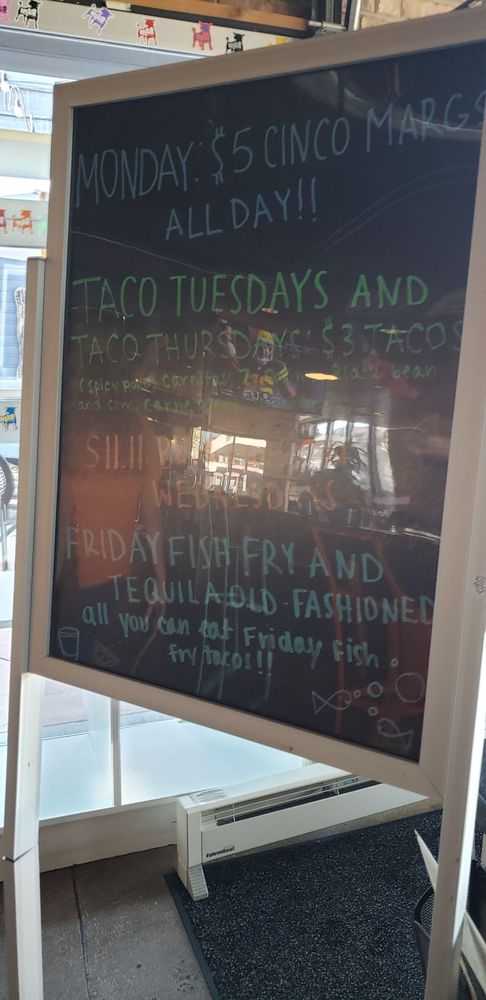 MONDAY: $5 CINCO MARGS
ALL DAY!!
TACO TUESDAYS AND
TACO THURSDAYS: $3 TACOS
(spicy carnitas, Black bean
and corn, carne
$11.11
WEDNESDAYS
FRIDAY FISH FRY AND
TEQUILA OLD-FASHIONED
all you can eat Friday Fish
fry tacos!!
Fahrenheat